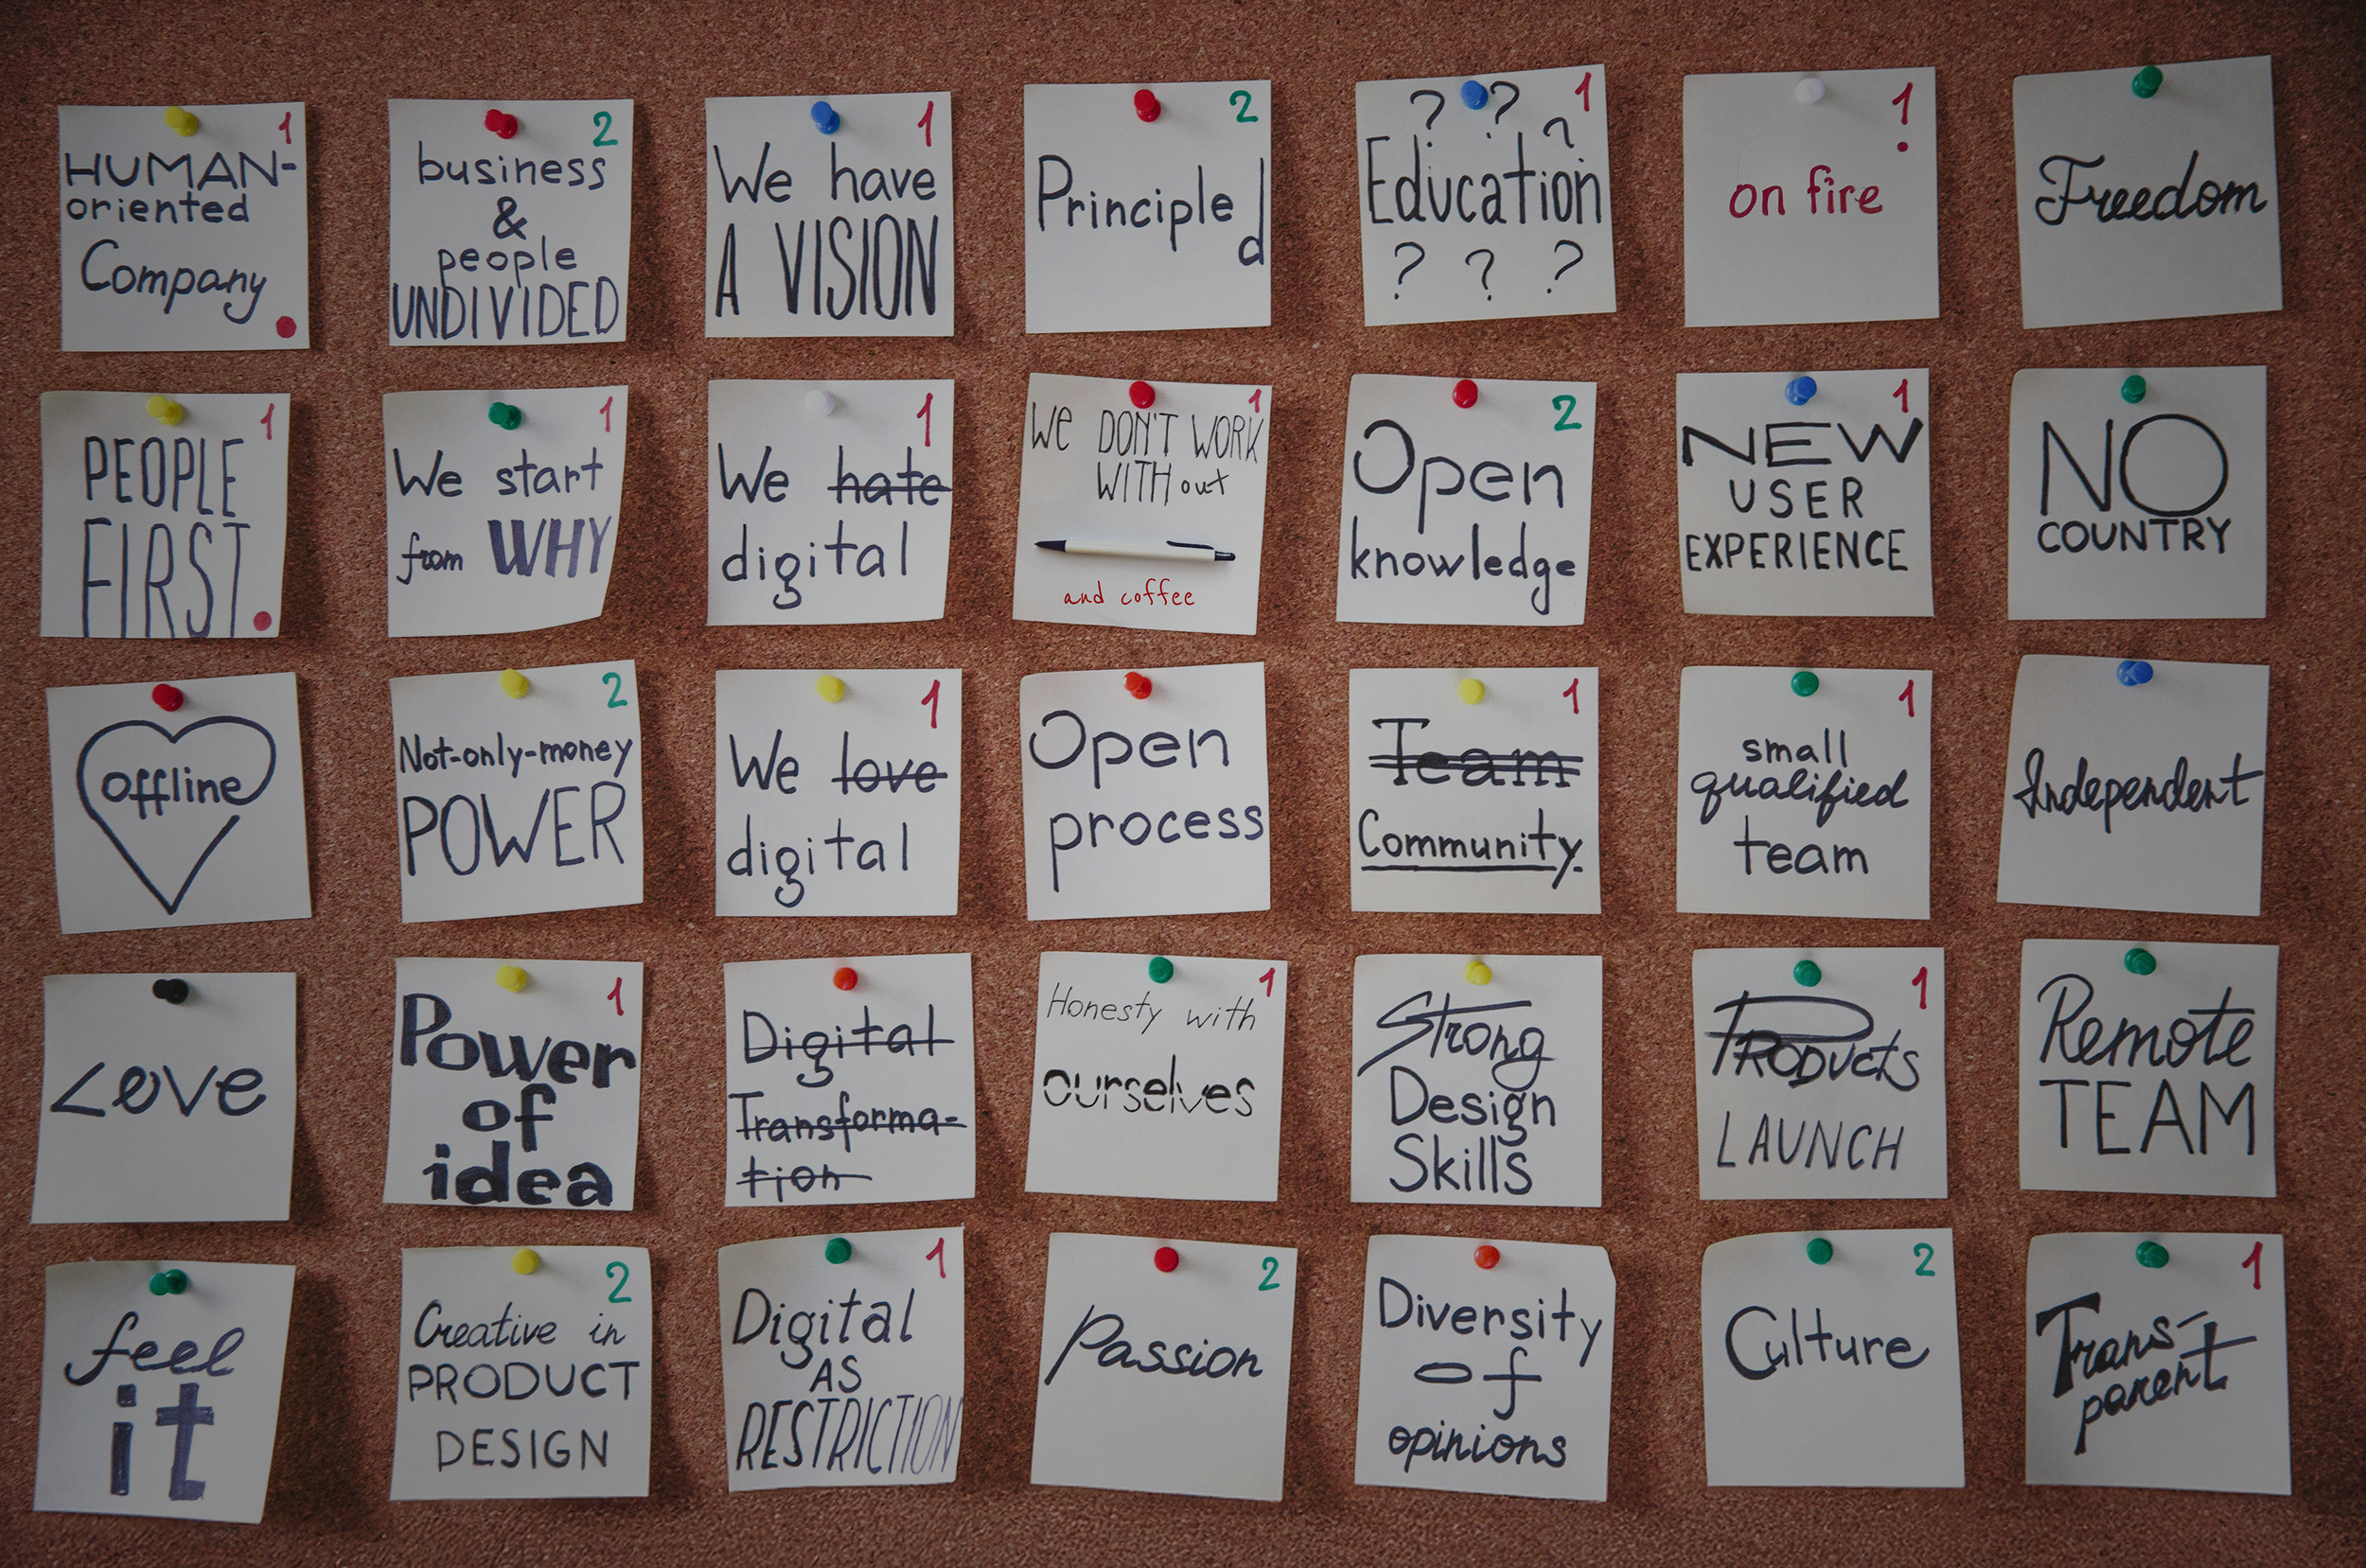 1
HUMAN-
oriented
Company.
2
business
&
people
UNDIVIDED
1
We have
A VISION
2
Principled
? ? 1
?
Education
? ? ?
1
on fire
Freedom
1
PEOPLE
FIRST.
1
We start
from WHY
1
We hate
digital
1
We DON'T WORK
WITHout
and coffee
2
Open
knowledge
1
NEW
USER
EXPERIENCE
NO
COUNTRY
offline
2
Not-only-money
POWER
1
We love
digital
Open
process
1
Team
Community.
1
small
qualified
team
Independent
Love
1
Power
of
idea
Digital
Transforma-
tion
1
Honesty with
ourselves
Strong
Design
Skills
1
PRODUCTS
LAUNCH
Remote
TEAM
feel
it
2
Creative in
PRODUCT
DESIGN
1
Digital
AS
RESTRICTION
2
Passion
Diversity
of
opinions
2
Culture
1
Trans-
parent